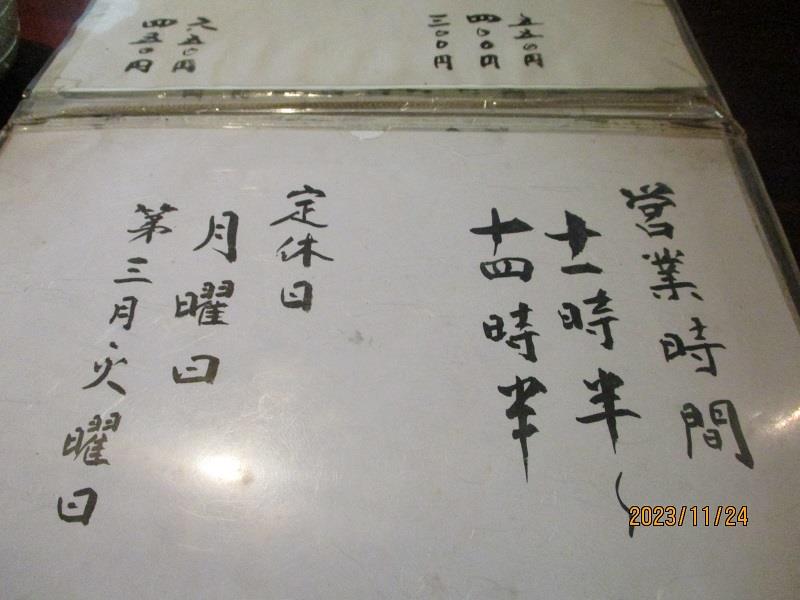 五五〇円
四〇〇円
三〇〇円
六五〇円
四五〇円
営業時間
十一時半〜
十四時半
定休日
月曜日
第三月火曜日
2023/11/24